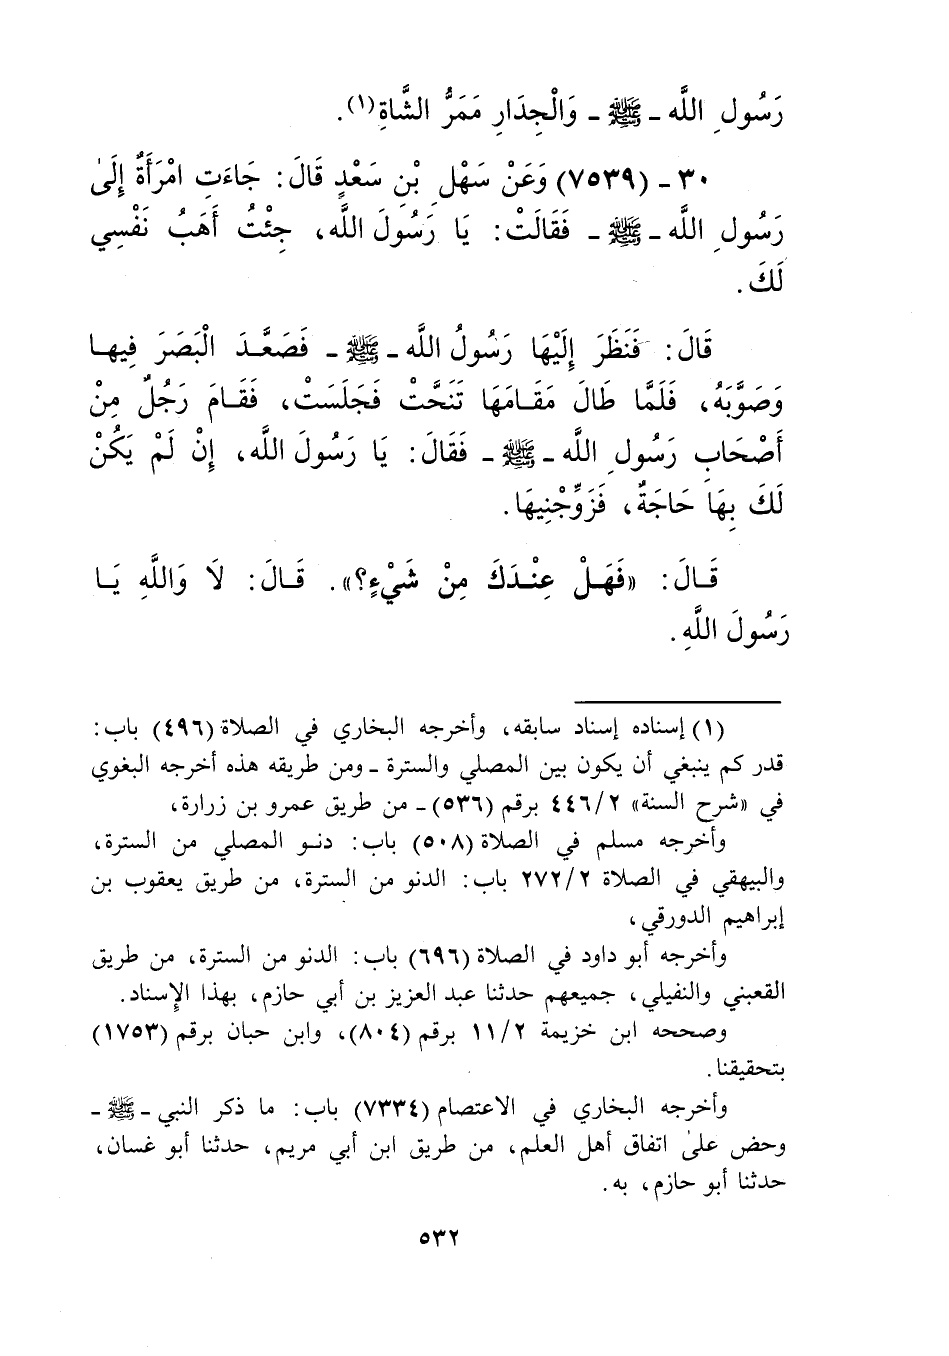 رَسُولِ اللَّه ـ ﷺ ـ وَالْجِدَارِ مَمَرُّ الشَّاةِ(١).
٣٠ ـ (٧٥٣٩) وَعَنْ سَهْلِ بْنِ سَعْدٍ قَالَ: جَاءَتِ امْرَأَةٌ إِلَىٰ
رَسُولِ اللَّه ـ ﷺ ـ فَقَالَتْ: يَا رَسُولَ اللَّه، جِئْتُ أَهَبُ نَفْسِي
لَكَ.
قَالَ: فَنَظَرَ إِلَيْهَا رَسُولُ اللَّه ـ ﷺ ـ فَصَعَّدَ الْبَصَرَ فِيهَا
وَصَوَّبَهُ، فَلَمَّا طَالَ مَقَامَهَا تَنَحَّتْ فَجَلَسَتْ، فَقَامَ رَجُلٌ مِنْ
أَصْحَابِ رَسُولِ اللَّه ـ ﷺ ـ فَقَالَ: يَا رَسُولَ اللَّه، إِنْ لَمْ يَكُنْ
لَكَ بِهَا حَاجَةٌ، فَزَوِّجْنِيهَا.
قَالَ: «فَهَلْ عِنْدَكَ مِنْ شَيْءٍ؟». قَالَ: لَا وَاللَّهِ يَا
رَسُولَ اللَّهِ.
(١) إسناده إسناد سابقه، وأخرجه البخاري في الصلاة (٤٩٦) باب:
قدر كم ينبغي أن يكون بين المصلي والسترة ـ ومن طريقه هذه أخرجه البغوي
في «شرح السنة» ٤٤٦/٢ برقم (٥٣٦) ـ من طريق عمرو بن زرارة،
وأخرجه مسلم في الصلاة (٥٠٨) باب: دنو المصلي من السترة،
والبيهقي في الصلاة ٢٧٢/٢ باب: الدنو من السترة، من طريق يعقوب بن
إبراهيم الدورقي،
وأخرجه أبو داود في الصلاة (٦٩٦) باب: الدنو من السترة، من طريق
القعنبي والنفيلي، جميعهم حدثنا عبد العزيز بن أبي حازم، بهذا الإسناد.
وصححه ابن خزيمة ١١/٢ برقم (٨٠٤)، وابن حبان برقم (١٧٥٣)
بتحقيقنا.
وأخرجه البخاري في الاعتصام (٧٣٣٤) باب: ما ذكر النبي ـ ﷺ ـ
وحض علىٰ اتفاق أهل العلم، من طريق ابن أبي مريم، حدثنا أبو غسان،
حدثنا أبو حازم، به.
٥٣٢